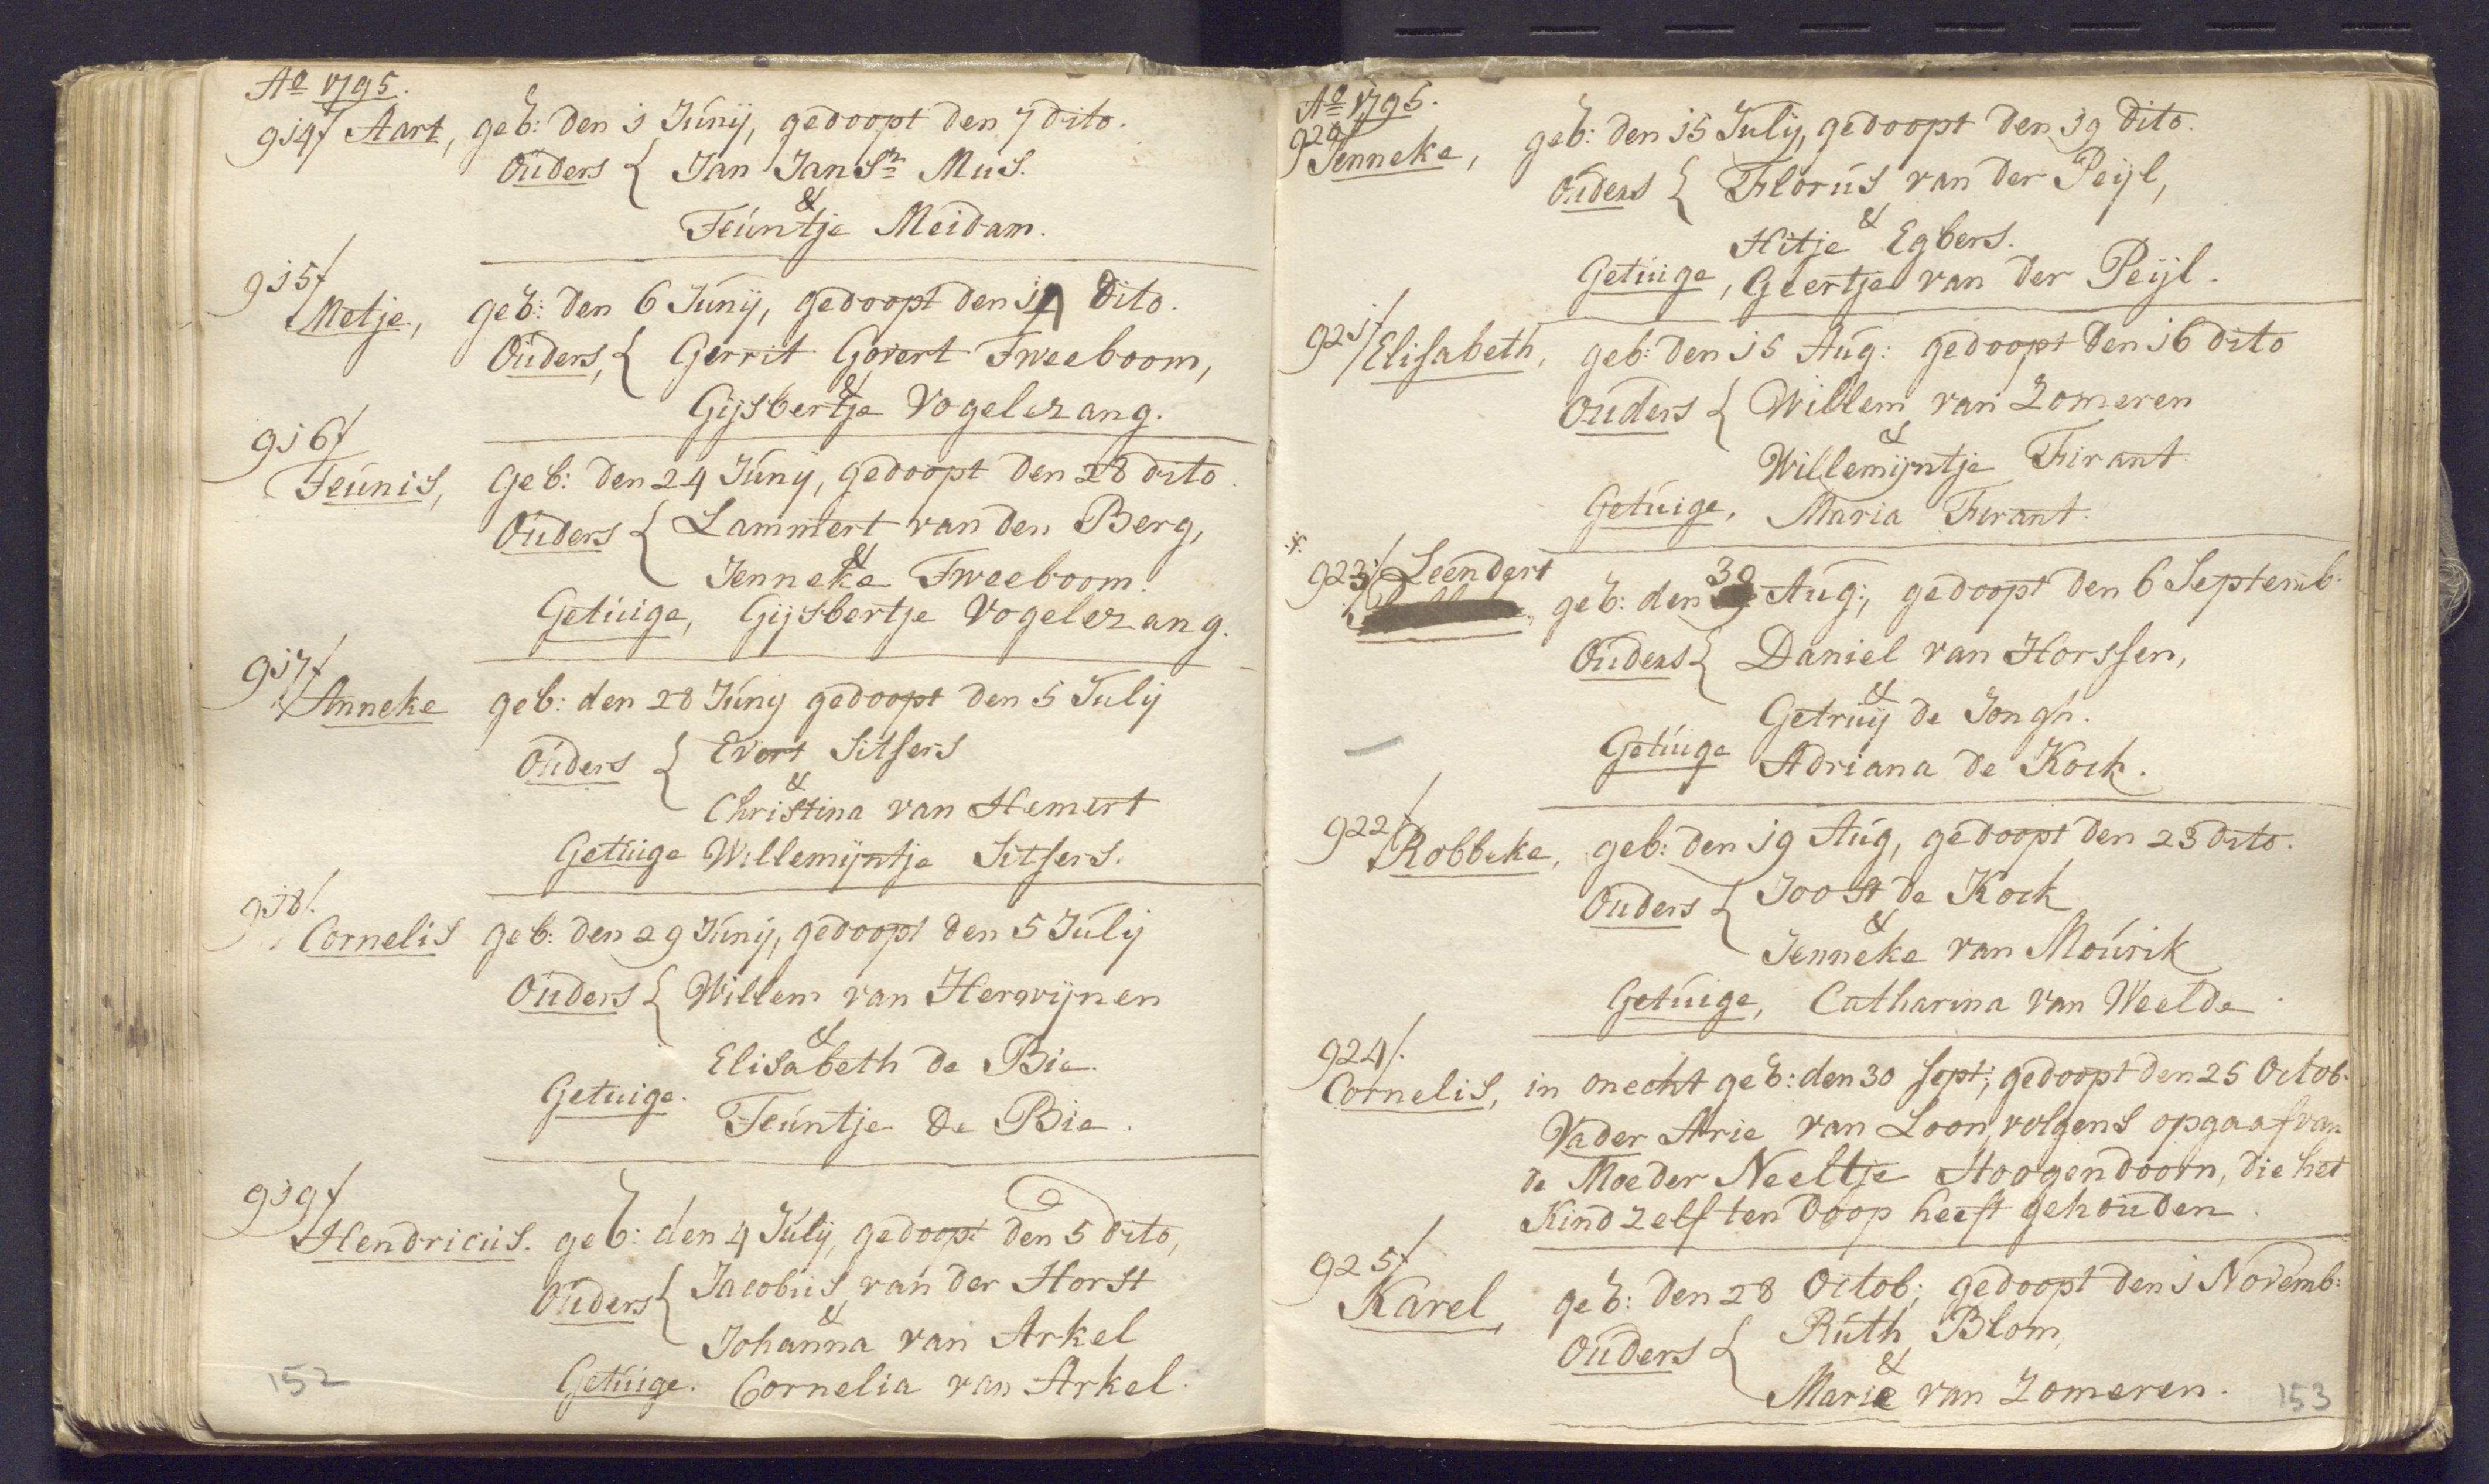 Aº 1795.
914/ Aart, geb: den 1 Junij, gedoopt den 7 dito.
Ouders { Jan Jansz Mus.
&
Teuntje Meidam.
915/
Metje, geb: den 6 Junij, gedoopt den 14 dito.
Ouders, { Gerrit Govert Tweeboom,
&
Gijsbertje Vogelezang.
916/
Teunis, Geb: den 24 Junij, gedoopt den 28 dito.
Ouders { Lammert van den Berg,
&
Jenneke Tweeboom.
Getuige, Gijsbertje Vogelezang.
917/
Anneke geb: den 28 Junij gedoopt den 5 Julij
Ouders { Evert Sitsers
&
Christina van Hemert
Getuige Willemijntje Sitsers.
918/.
Cornelis geb: den 29 Junij, gedoopt den 5 Julij
Ouders { Willem van Herwijnen
&
Elisabeth de Bie.
Getuige. Teuntje de Bie.
919/
Hendricus. geb: den 4 Julij, gedoopt den 5 dito,
Ouders { Jacobus van der Horst
&
Johanna van Arkel
Getuige. Cornelia van Arkel.
152
Aº 1795.
920/
Jenneke, geb: den 15 Julij, gedoopt den 19 dito.
Ouders { Florus van der Peijl,
&
Hitje Egbers.
Getuige, Geertje van der Peijl.
921/
Elisabeth, geb: den 15 Aug: gedoopt den 16 dito
Ouders { Willem van Zomeren
&
Willemijntje Firant
Getuige, Maria Firant.
923/ Leendert geb: den 30 Aug:, gedoopt den 6 Septemb.
Ouders { Daniel van Horssen,
&
Getruij de Jongh.
Getuige Adriana de Kock.
922/
Robbeke, geb: den 19 Aug, gedoopt den 23 dito.
Ouders { Joost de Kock
&
Jenneke van Mourik
Getuige, Catharina van Weelde
924/.
Cornelis, in onecht geb: den 30 Sept:, gedoopt den 25 Octob.
Vader Arie van Loon, volgens opgaaf van
de Moeder Neeltje Hoogendoorn, die het
Kind zelf ten Doop heeft gehouden.
925/
Karel, geb: den 28 Octob; gedoopt den 1 Novemb:
Ouders { Ruth Blom,
&
Marie van Zomeren.
153